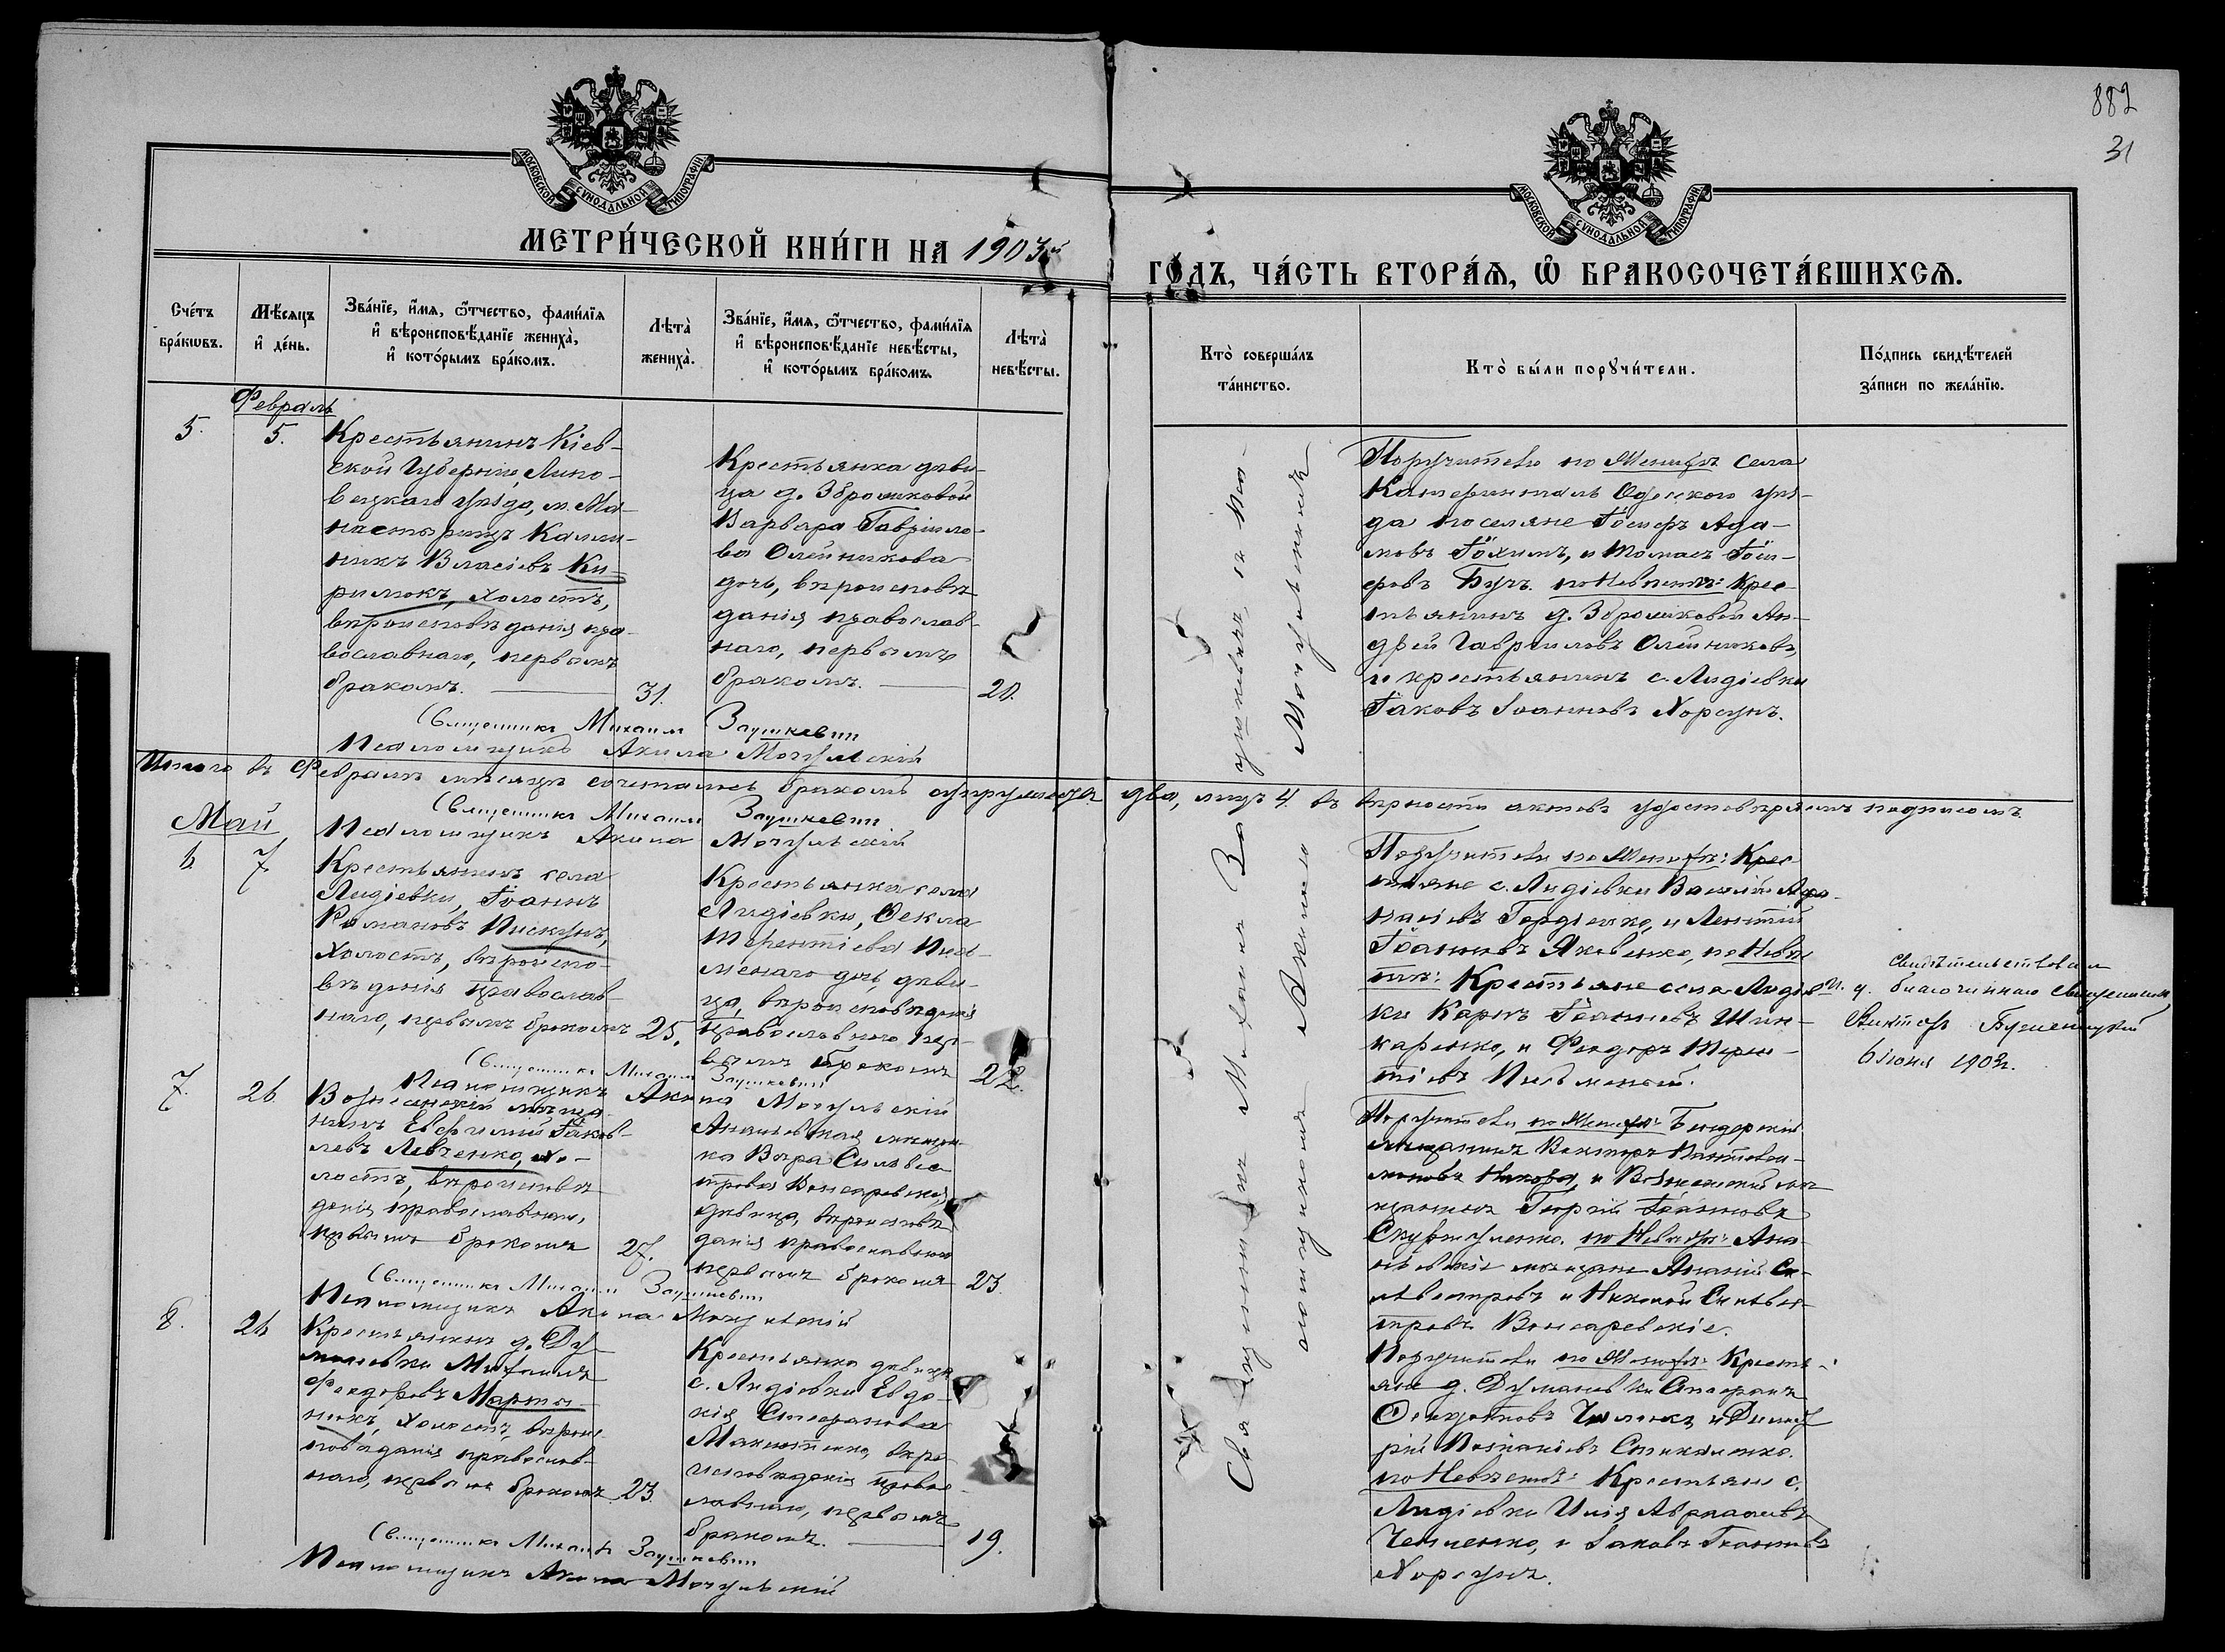 882
31
МОСКОВСКОЙ СѴНОДАЛЬНОЙ ТИПОГРАФІИ
МОСКОВСКОЙ СѴНОДАЛЬНОЙ ТИПОГРАФІИ
МЕТРИ́ЧЕСКОЙ КНИ́ГИ НА 1903й
ГО́ДЪ, ЧА́СТЬ ВТОРА́Я, Ѽ БРАКОСОЧЕТА́ВШИХСЯ.
Сче́тъ
бра́кѡвъ.
Мѣ́сяцъ
и҆ де́нь.
Зва́нїе, и҆́мя, ѻ҆́тчество, фами́лїя
и҆ вѣроисповѣ́данїе жениха̀,
и҆ кото́рымъ бра́комъ.
Лѣта̀
жениха̀.
Зва́нїе, и҆́мя, ѻ҆́тчество, фами́лїя
и҆ вѣроисповѣ́данїе невѣ́сты,
и҆ кото́рымъ бра́комъ.
Лѣта̀
невѣ́сты.
Кто̀ соверша́лъ
та́инство.
Кто̀ бы́ли порꙋчи́тели.
По́дпись свидѣ́телей
за́писи по жела́нїю.
Февраль
5. 5.
Крестьянинъ Кіев-
ской Губерніи, Липо-
вецкаго уѣзда, м. Мо-
настырищъ Калли-
никъ Власіевъ Ки-
рилюкъ, холостъ,
вѣроисповѣданія пра-
вославнаго, первымъ
бракомъ.
31.
Крестьянка дѣви-
ца д. Зброшковой
Варвара Гавріило-
ва Олейникова
дочь, вѣроисповѣ
данія православ-
наго, первымъ
бракомъ.
20.
Поручители по Женихѣ села
Катериненталь Одесскаго уѣз-
да поселяне Іосифъ Ада-
мовъ и Томасъ Іоси-
фовъ Буч. по Невѣстѣ: Крес-
тьянинъ д. Зброшковой Ан-
дрей Гавриловъ Олейниковъ,
и крестьянинъ с. Лидіевки
Іаковъ Іоанновъ Хорсунъ.
Священникъ Михаилъ Заушкевич
Псаломщикъ Акила Могульскій
Итого въ Февралѣ мѣсяцѣ сочеталось бракомъ супружествъ два, лицъ 4. въ вѣрности актовъ удостовѣряемъ подписомъ
Священникъ Михаилъ Заушкевич
Псаломщикъ Акила Могульскій
Май
6 7
Крестьянинъ села
Лидіевки, Іоаннъ
Романовъ Пискунъ,
холостъ, вѣроиспо-
вѣданія православ-
наго, первымъ бракомъ
25.
Крестьянка села
Лидіевки, Ѳекла
Терентіева Пись-
меннаго дочь, дѣви-
ца, вѣроисповѣданія
православнаго пер-
вымъ бракомъ
22.
Поручители по Женихѣ: Крес-
тьяне с. Лидіевки Василій Афа-
насіевъ Гордіенко, и Леонтій
Іоанновъ Яковенко, по Невѣс
тѣ: Крестьяне села Лидіев-
ки Карпъ Іоанновъ Шин-
каренко, и Феодоръ Терен-
тіевъ Письменный.
Свидѣтельствовалъ
И. д. благочиннаго Священникъ
Викторъ
6 іюня 1903г.
Священникъ Михаилъ Заушкевич
Псаломщикъ Акила Могульскій
7. 26
Вознесенскій мѣща-
нинъ Евфимій Іаков-
левъ Левченко, хо-
лостъ, вѣроисповѣ
данія православнаго,
первымъ бракомъ
27.
Ананьевская мѣщан-
ка Вѣра Сильвес-
трова Вонсаревская,
дѣвица, вѣроисповѣ
данія православнаго
первымъ бракомъ
23.
Поручители по Женихѣ: Бендерскій
мѣщанинъ Викторъ Пантелеи-
моновъ и Вознесенскій мѣ
щанинъ Георгій Іоанновъ
по Невѣстѣ: Ана-
ніевскіе мѣщане Ананій Си-
львестровъ и Николай Сильвес-
тровъ Вонсаревскіе.
Священникъ Михаилъ Заушкевич
Псаломщикъ Акила Могульскій
8. 26
Крестьянинъ д. Ду-
мановки Михаилъ
Феодоровъ Марты-
нюкъ, холостъ, вѣроис
повѣданія православ-
наго, первымъ бракомъ
23.
Крестьянка дѣвица
с. Лидіевки Евдо-
кія Стефанова
Макотенко, вѣро-
исповѣданія право-
славнаго, первымъ
бракомъ.
19.
Поручители по Женихѣ: Кресть-
яне д. Думановки Стефанъ
и Димит
рій
по Невѣстѣ: Крестьяне с.
Лидіевки Илія Авраамовъ
и Іаковъ Іоанновъ
Хорсунъ.
Священникъ Михаилъ Заушкевич
Псаломщикъ Акила Могульскій
Священникъ Михаилъ Заушкевичъ, съ пса-
ломщикомъ Акилою Могульскимъ